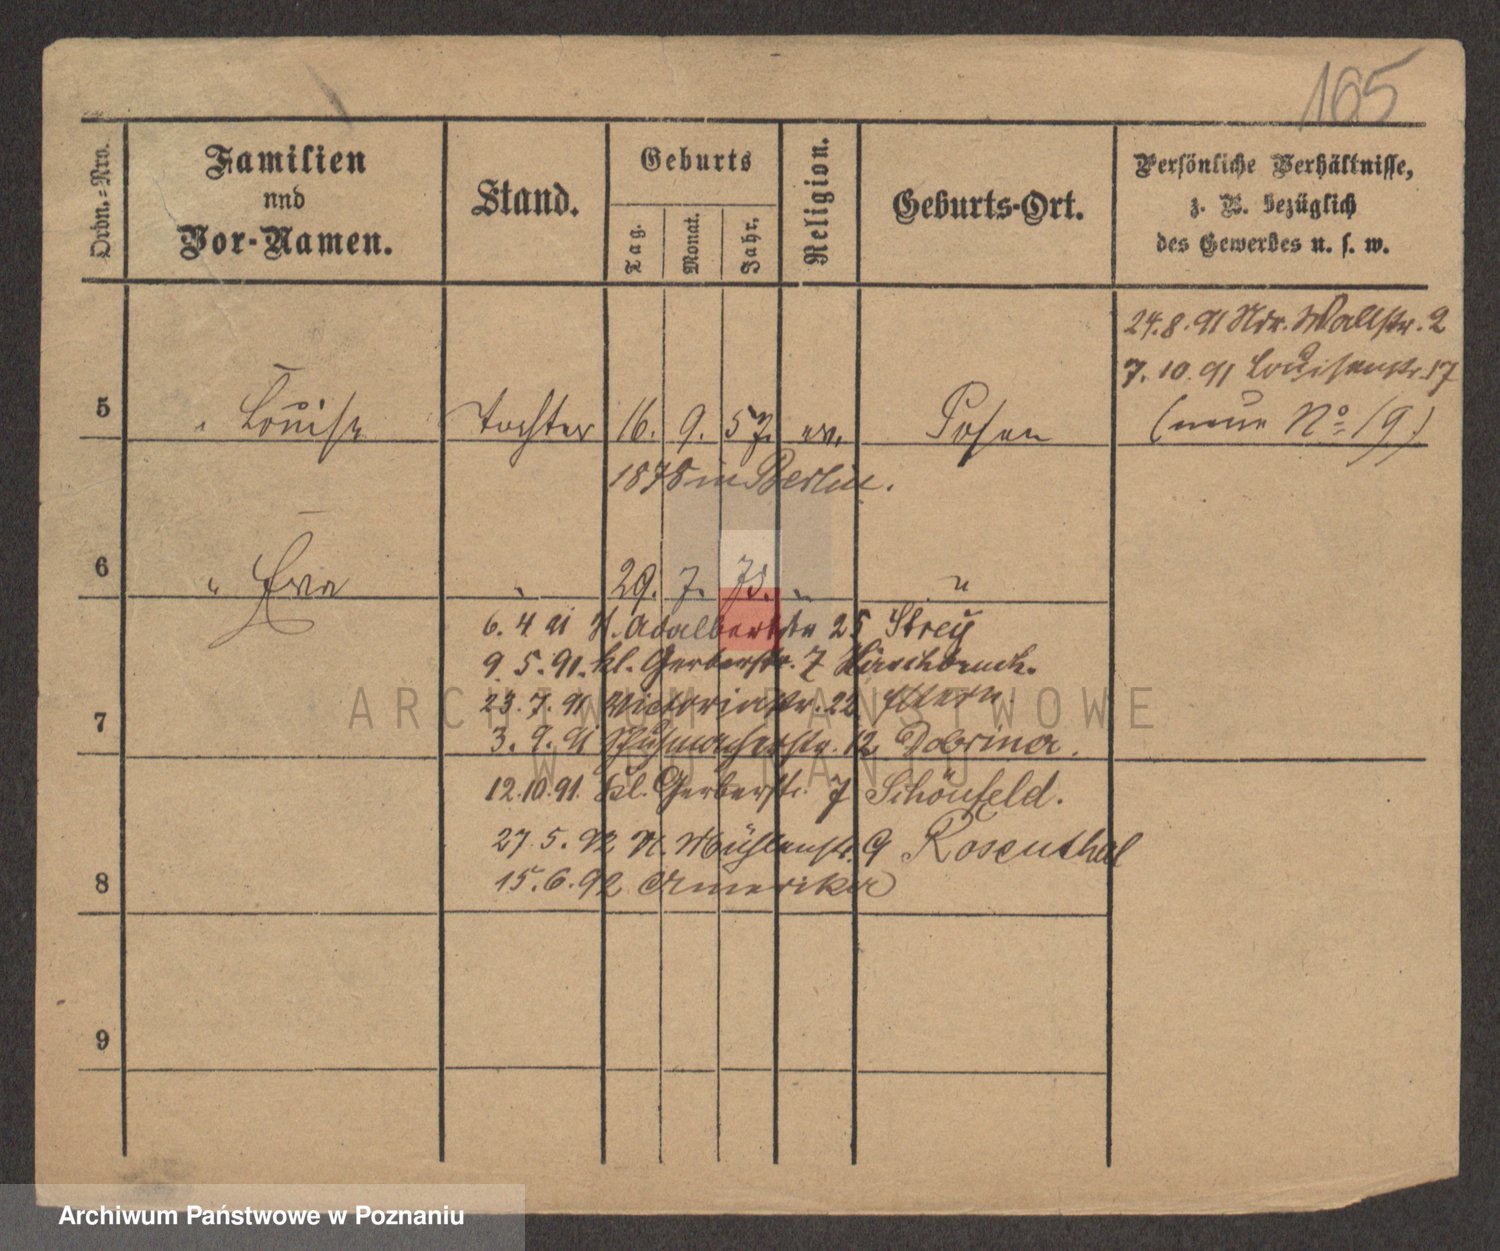 165
Ordn.-Nro.
Familien
und
Vor-Namen.
Stand.
Geburts
Tag.
Monat.
Jahr.
Religion.
Geburts-Ort.
Persönliche Verhältnisse,
z. B. bezüglich
des Gewerbes u. s. w.
24.8.91 Ndr. Wallstr. 2
7.10.91 Louisenstr. 17
(neue No 19)
5 " Louise Tochter 16. 9. 57. ev. Posen
1878 in Berlin.
6 " Eva " 29. 7. 73. " "
6.4 91 St. Adalbertstr 25 Strey
9.5.91. kl. Gerberstr. 7 Hirschbruch.
23.7.91 Victoriastr. 22 Stern.
7
3.9.91 Schuhmacherstr. 12 Dobriner.
12.10.91. kl. Gerberstr. 7 Schönfeld.
27.5.92 N. Mühlenstr. 9 Rosenthal
8
15.6.92 Amerika
9
ARCHIWUM PAŃSTWOWE
W POZNANIU
Archiwum Państwowe w Poznaniu